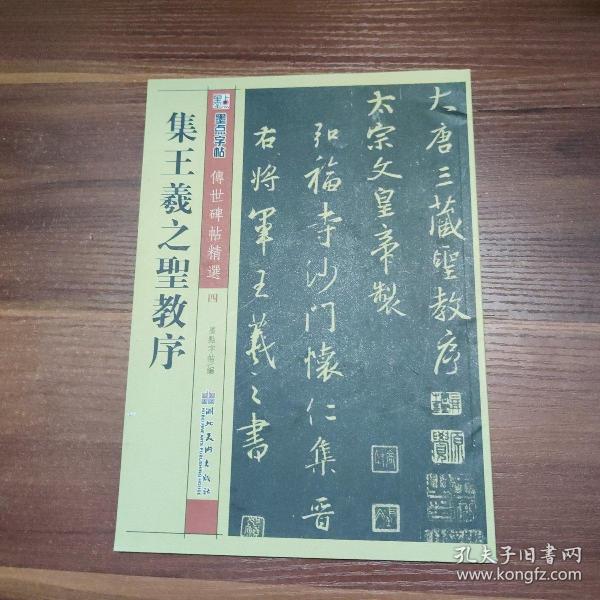 大唐三藏聖教序
太宗文皇帝製
弘福寺沙門懷仁集晋
右將軍王羲之書
墨点字帖
傳世碑帖精選
四
墨點字帖/編
湖北美術出版社
HUBEI FINE ARTS PUBLISHING HOUSE
集王羲之聖教序
孔夫子旧书网
www.kongfz.com